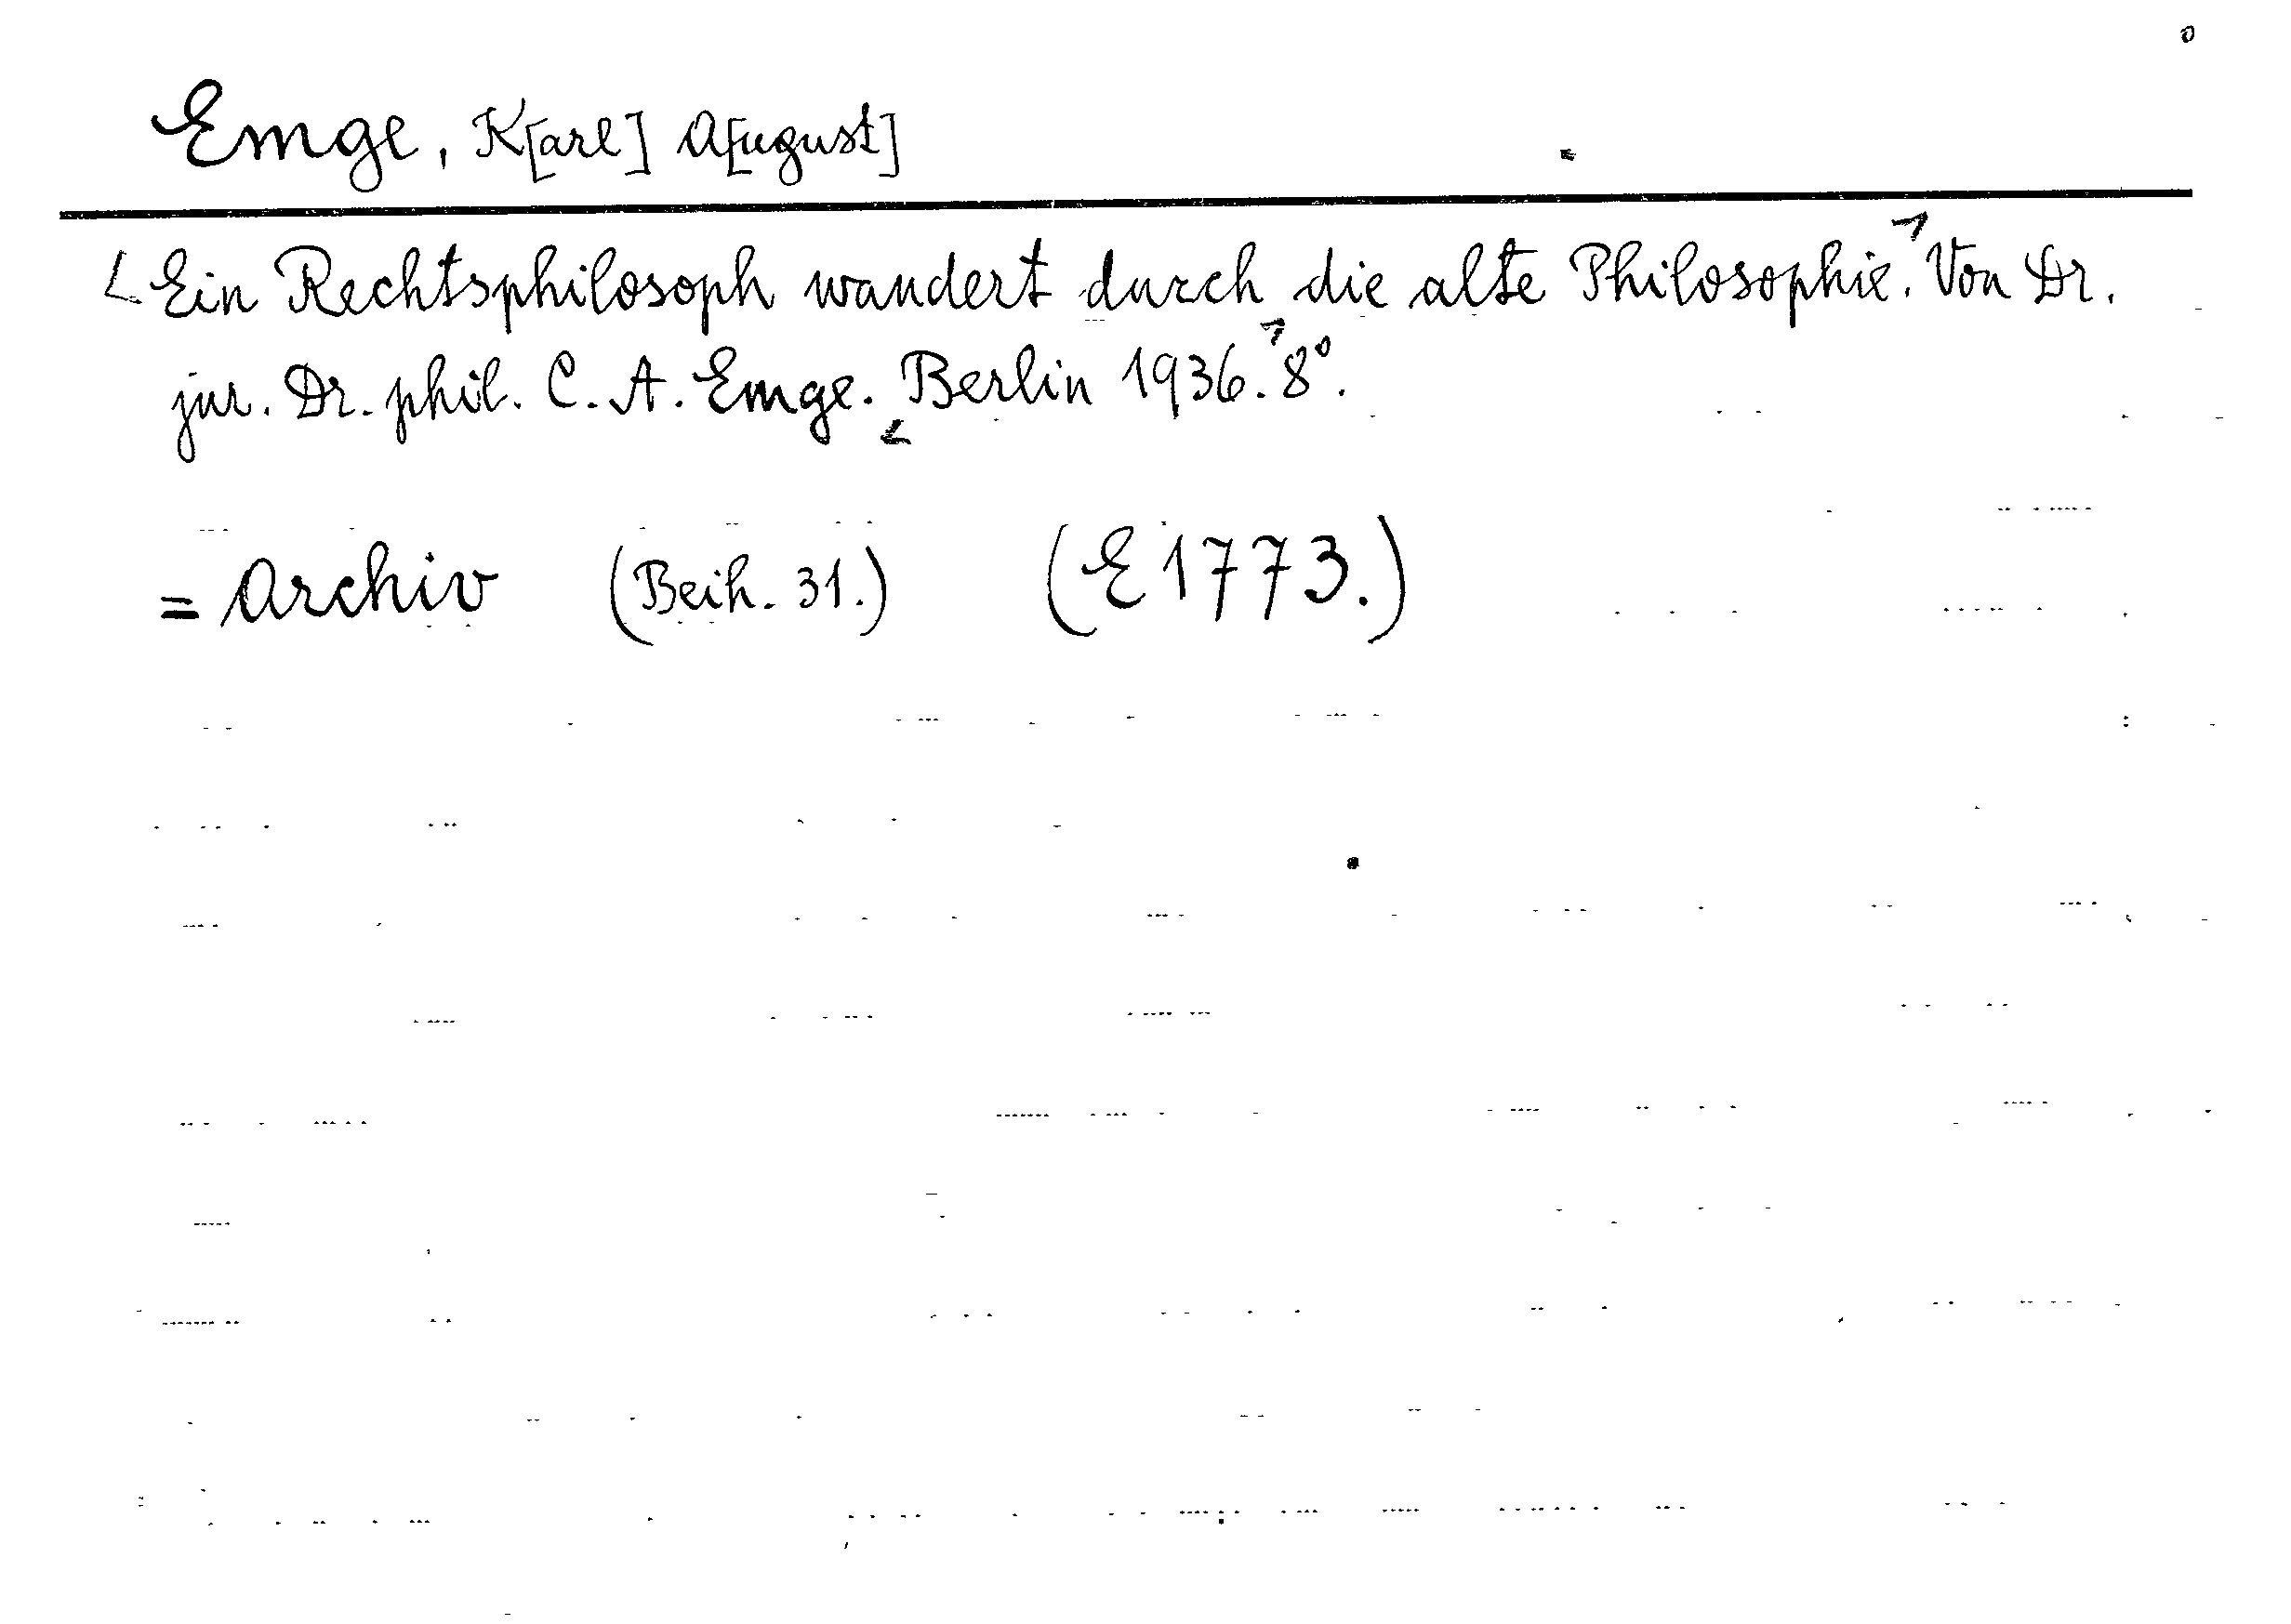 Emge, K[arl] A[ugust]
Ein Rechtsphilosoph wandert durch die alte Philosophie. Von Dr.
jur. Dr. phil. C. A. Emge. Berlin 1936. 8°.
= Archiv (Beih. 31.) (E 1773.)